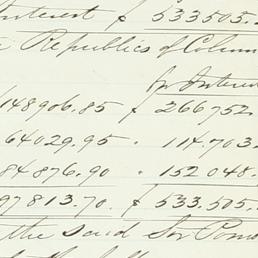 Interest $ 533505.
Republics of Colum
for Interes
148906.85 $ 266752
64029.95 " 114.703
84876.90 " 152048.
97813.70 $ 533,505.
the said